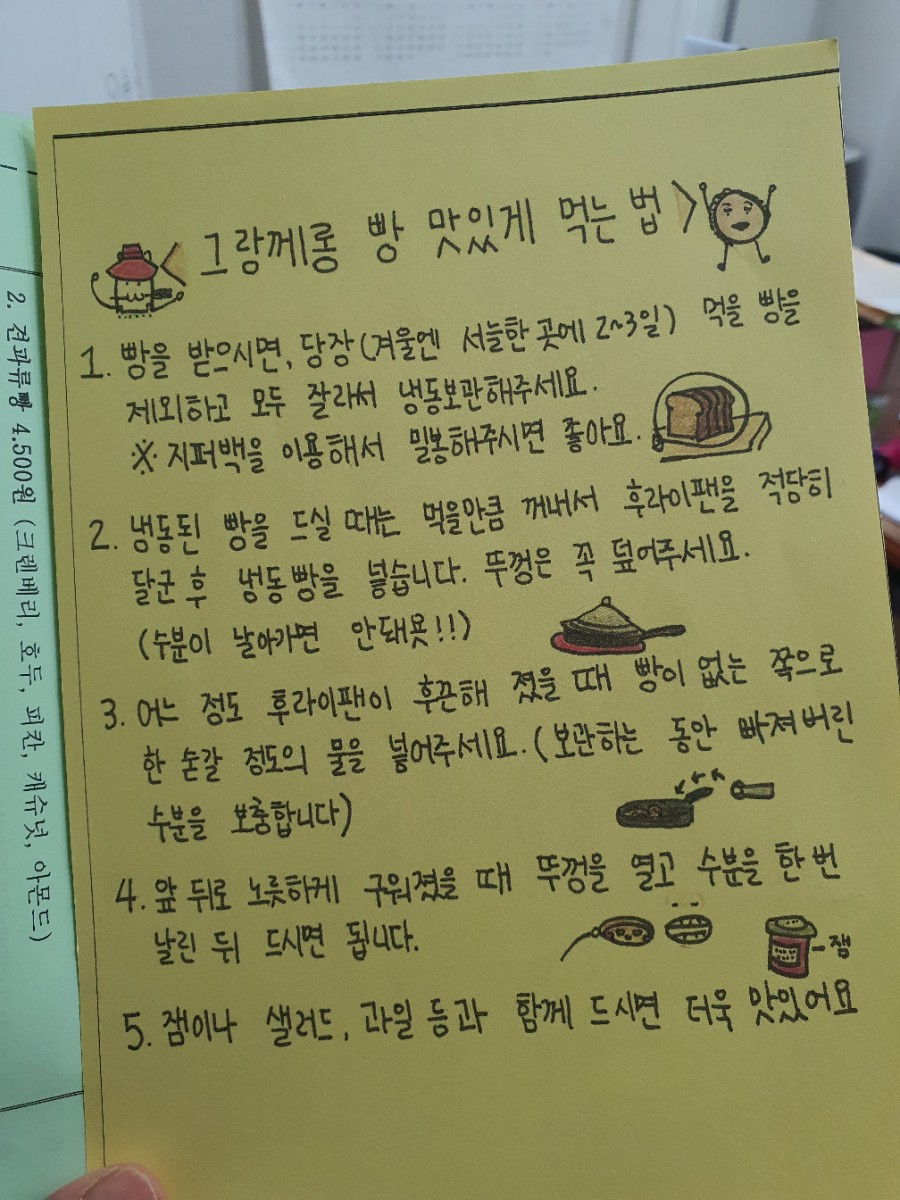 그랑께롱 빵 맛있게 먹는 법
1. 빵을 받으시면, 당장(겨울엔 서늘한 곳에 2~3일) 먹을 빵을
제외하고 모두 잘라서 냉동보관해주세요.
※ 지퍼백을 이용해서 밀봉해주시면 좋아요.
2. 냉동된 빵을 드실 때는 먹을만큼 꺼내서 후라이팬을 적당히
달군 후 냉동빵을 넣습니다. 뚜껑은 꼭 덮어주세요.
(수분이 날아가면 안돼욧!!)
3. 어느 정도 후라이팬이 후끈해 졌을 때 빵이 없는 쪽으로
한 숟갈 정도의 물을 넣어주세요. (보관하는 동안 빠져버린
수분을 보충합니다)
4. 앞 뒤로 노릇하게 구워졌을 때 뚜껑을 열고 수분을 한 번
날린 뒤 드시면 됩니다.
-잼
5. 잼이나 샐러드, 과일 등과 함께 드시면 더욱 맛있어요
2. 견과류빵 4.500원 (크렌베리, 호두, 피칸, 캐슈넛, 아몬드)